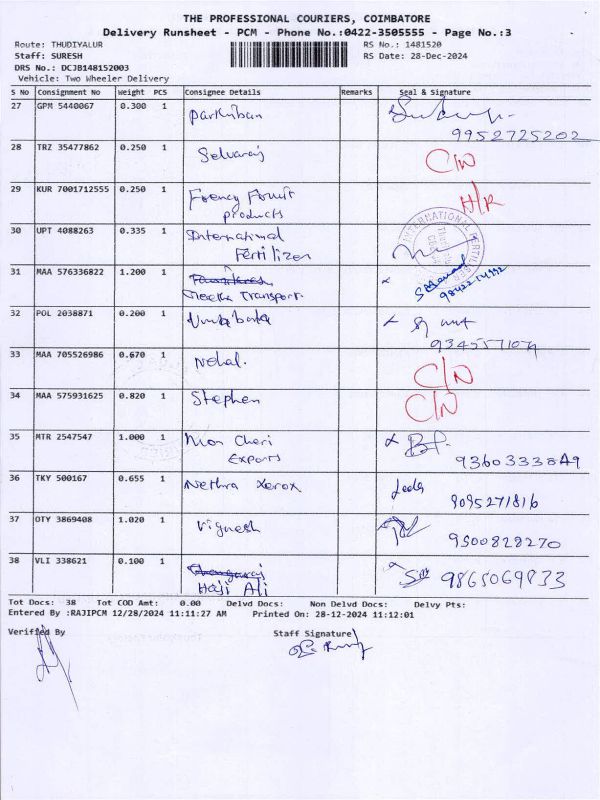 THE PROFESSIONAL COURIERS, COIMBATORE
Delivery Runsheet - PCM - Phone No.:0422-3505555 - Page No.:3
Route: THUDIYALUR RS No.: 1481520
Staff: SURESH RS Date: 28-Dec-2024
DRS No.: DCJB148152003
Vehicle: Two Wheeler Delivery
S No Consignment No Weight PCS Consignee Details Remarks Seal & Signature
27 GPM 5440067 0.300 1 Parthiban
9952725202
28 TRZ 35477862 0.250 1 Selvaraj C/N
29 KUR 7001712555 0.250 1 H/R
products
30 UPT 4088263 0.335 1 International
Fertilizer
INTERNATIONAL FERTILIZER
31 MAA 576336822 1.200 1
Transport.
32 POL 2038871 0.200 1
33 MAA 705526986 0.670 1 Nehal. C/N
34 MAA 575931625 0.820 1 Stephen C/N
35 MTR 2547547 1.000 1 Mon Cheri
Exports
36 TKY 500167 0.655 1 Nethra Xerox
9095271816
37 OTY 3869408 1.020 1 Vignesh
9500828270
38 VLI 338621 0.100 1
Haji Ali 9865069833
Tot Docs: 38 Tot COD Amt: 0.00 Delvd Docs: Non Delvd Docs: Delvy Pts:
Entered By :RAJIPCM 12/28/2024 11:11:27 AM Printed On: 28-12-2024 11:12:01
Verified By Staff Signature